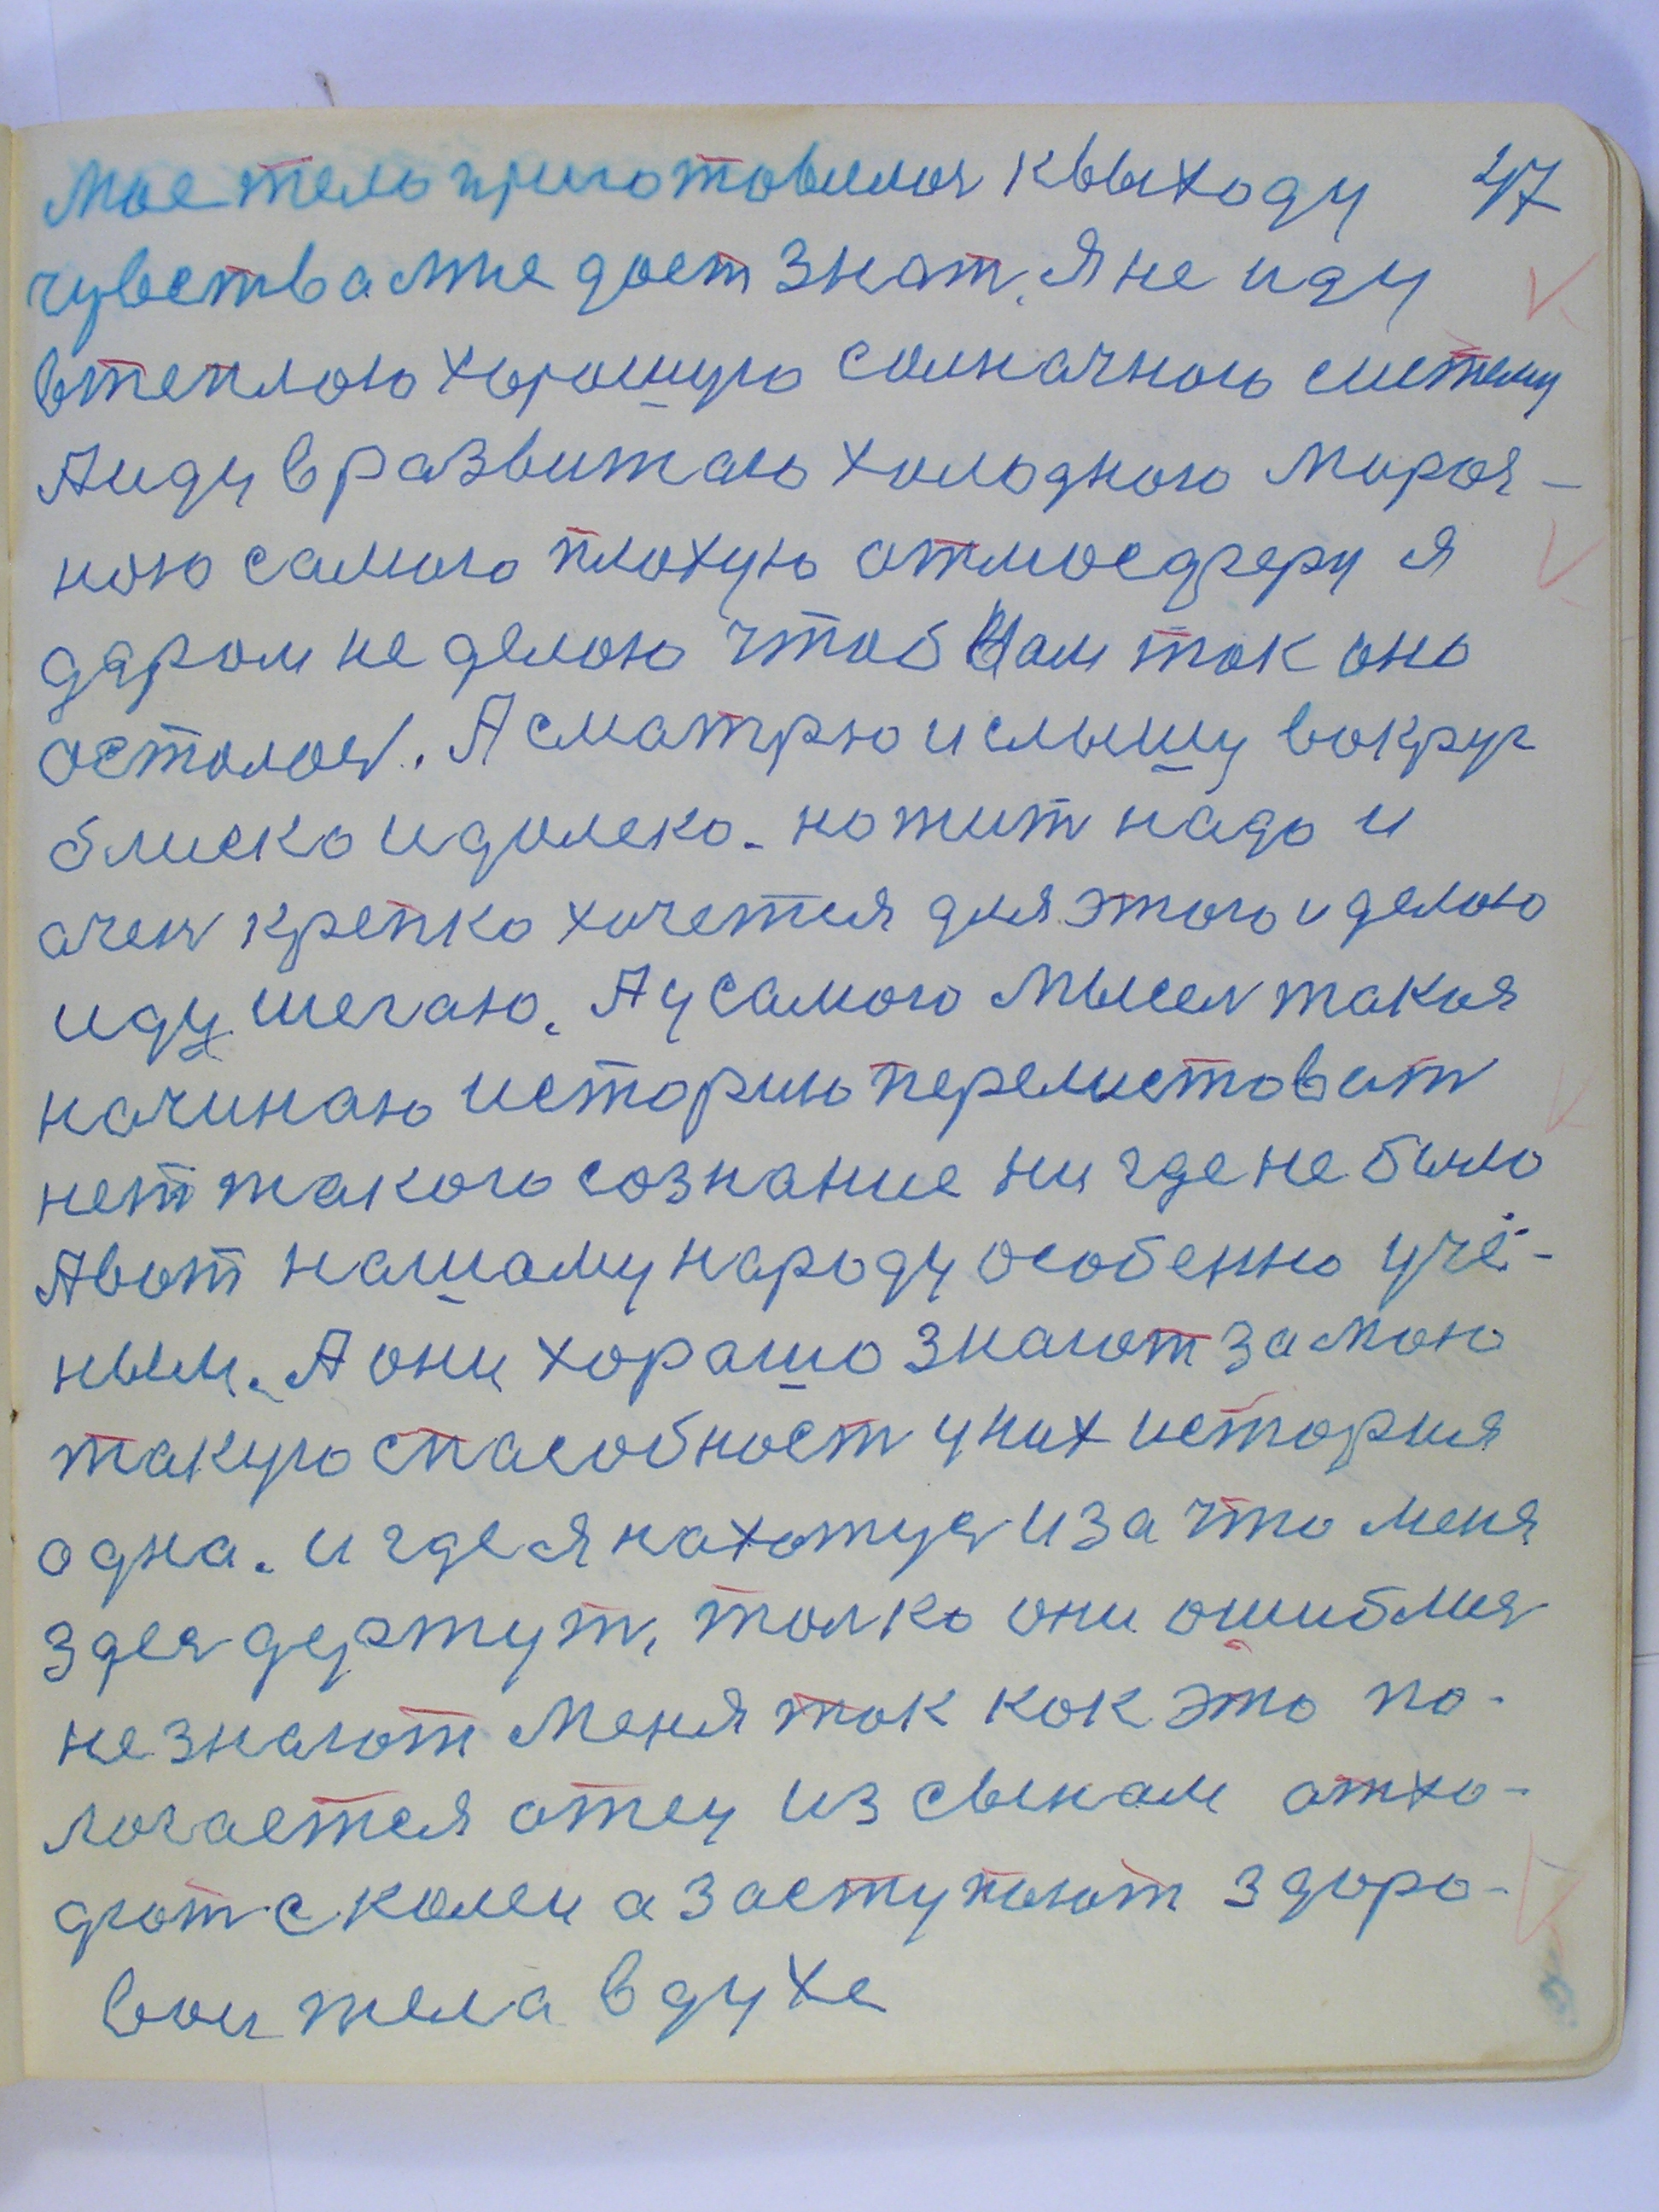 Мое тело приготовилося квыходу 47
чувства мне дает знат. Я не иду
втеплою хорошую солначною систему
Аиду вразвитаю холодною мороз-
ною самого плохую отмосдферу я
даром не делаю чтоб Нам так оно
осталось. А сматрю ислышу вокруг
блиско идалеко. ножит надо и
очен крепко хочется для этого иделаю
иду шегаю. Ау самого мысел такая
начинаю историю перелистоват
нет такого сознание ни где не было
Авот нашаму народу особенно учё-
ным. А они хорашо знают за мою
такую спасобност уних история
одна. и где я нахотуся иза что меня
здеся держут, толко они ошиблися
незнают Меня так как это по-
лочается отец из сынам отхо-
дют с колеи а заступают здоро-
вои тела вдухе